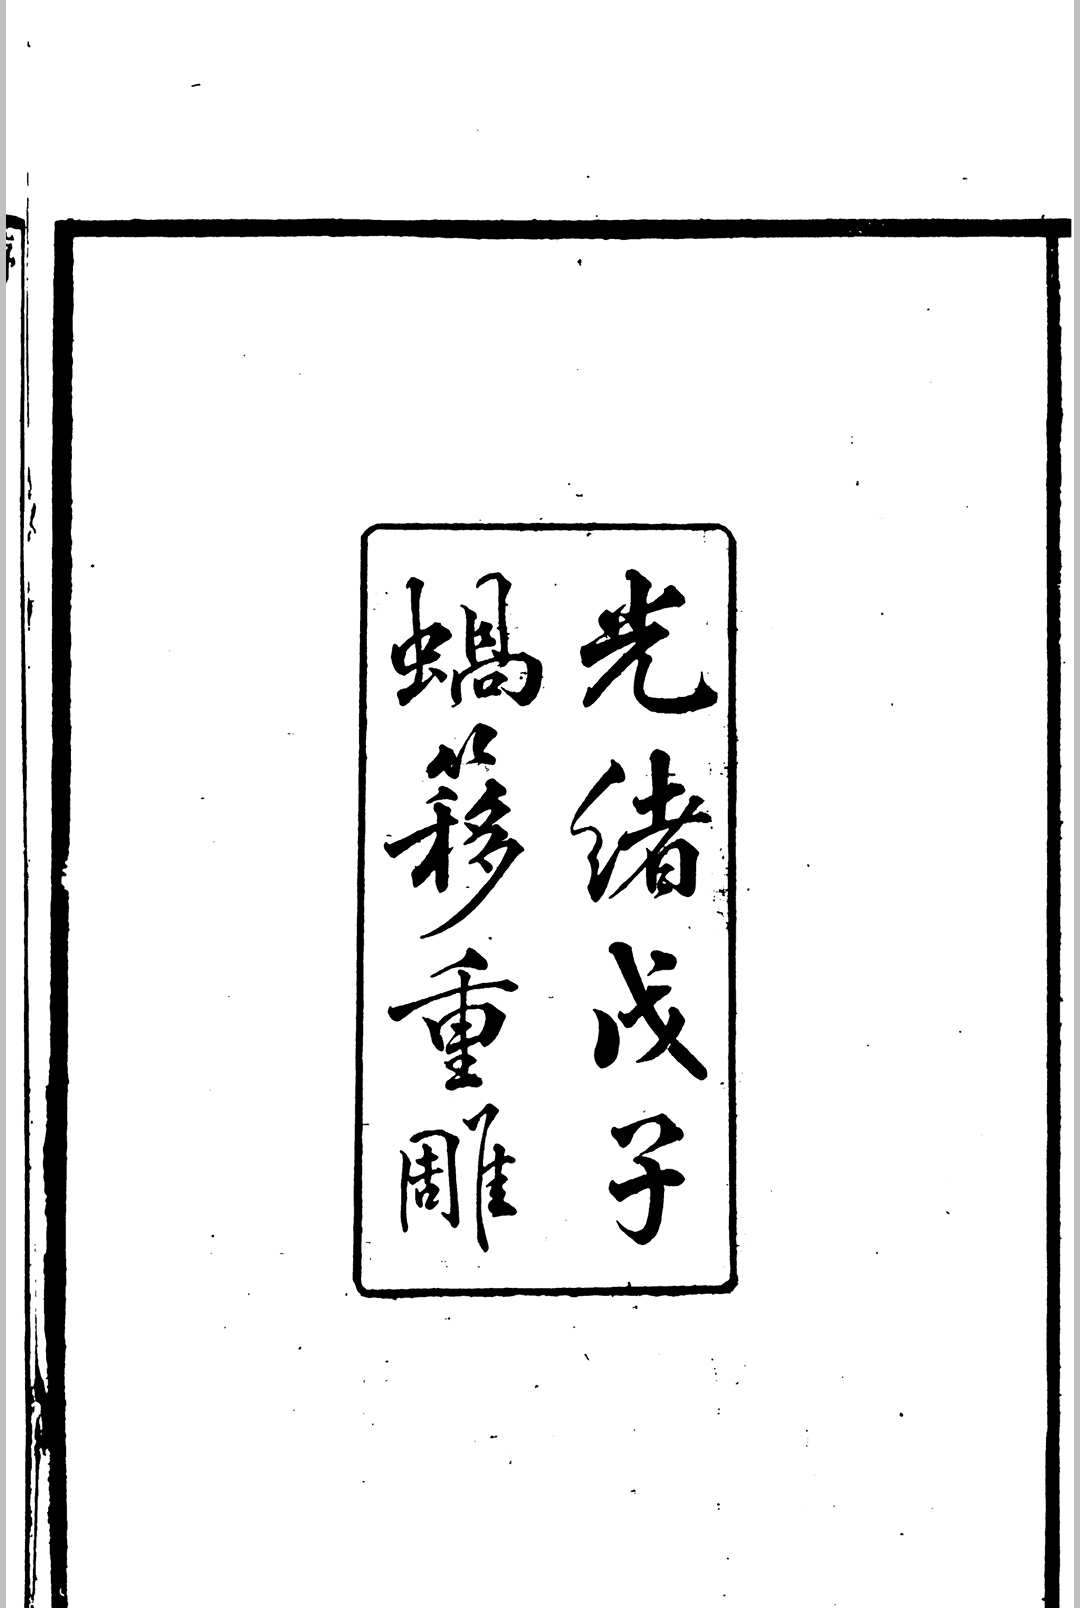 光緒戊子
蝸簃重雕